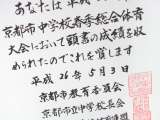 あなたは平
京都市中学校春季総合体育
大会において顕著の成績を収
められたのでこれを賞します
平成26年5月3日
京都市教育委員会
京都市立中学校長会